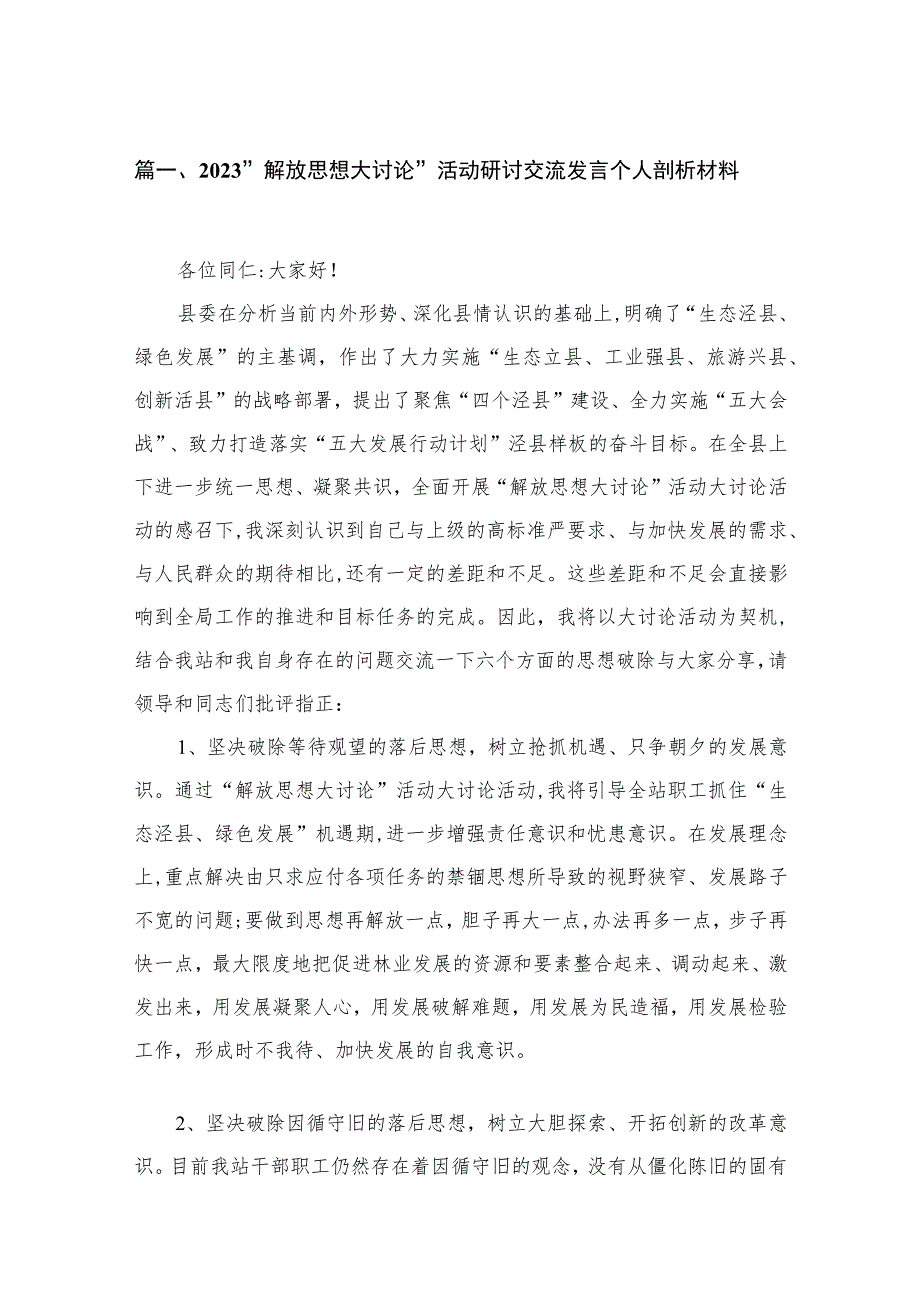 篇一、2023”解放思想大讨论”活动研讨交流发言个人剖析材料
各位同仁:大家好！
县委在分析当前内外形势、深化县情认识的基础上,明确了“生态泾县、
绿色发展”的主基调，作出了大力实施“生态立县、工业强县、旅游兴县、
创新活县”的战略部署，提出了聚焦“四个泾县”建设、全力实施“五大会
战”、致力打造落实“五大发展行动计划”泾县样板的奋斗目标。在全县上
下进一步统一思想、凝聚共识，全面开展“解放思想大讨论”活动大讨论活
动的感召下,我深刻认识到自己与上级的高标准严要求、与加快发展的需求、
与人民群众的期待相比,还有一定的差距和不足。这些差距和不足会直接影
响到全局工作的推进和目标任务的完成。因此，我将以大讨论活动为契机,
结合我站和我自身存在的问题交流一下六个方面的思想破除与大家分享,请
领导和同志们批评指正：
1、坚决破除等待观望的落后思想，树立抢抓机遇、只争朝夕的发展意
识。通过“解放思想大讨论”活动大讨论活动,我将引导全站职工抓住“生
态泾县、绿色发展”机遇期,进一步增强责任意识和忧患意识。在发展理念
上,重点解决由只求应付各项任务的禁锢思想所导致的视野狭窄、发展路子
不宽的问题;要做到思想再解放一点，胆子再大一点,办法再多一点，步子再
快一点，最大限度地把促进林业发展的资源和要素整合起来、调动起来、激
发出来，用发展凝聚人心，用发展破解难题，用发展为民造福，用发展检验
工作，形成时不我待、加快发展的自我意识。
2、坚决破除因循守旧的落后思想，树立大胆探索、开拓创新的改革意
识。目前我站干部职工仍然存在着因循守旧的观念，没有从僵化陈旧的固有